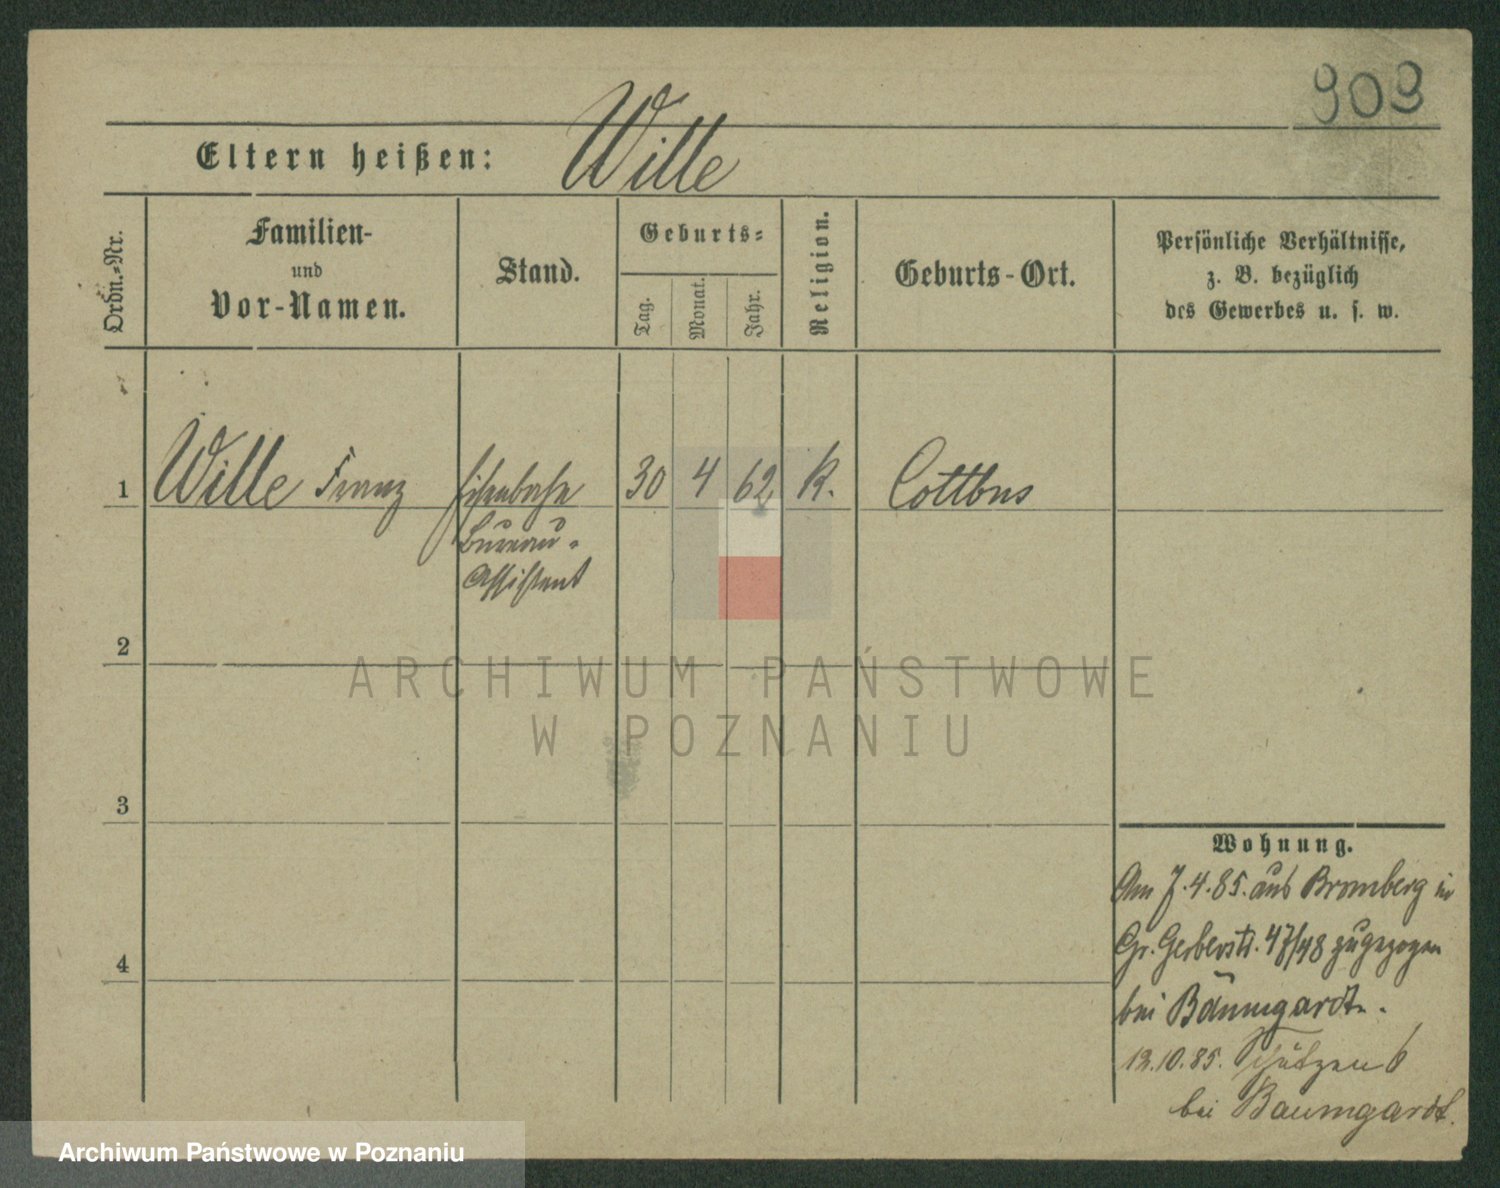 909
Eltern heißen: Wille
Ordn.-Nr.
Familien-
und
Vor-Namen.
Stand.
Geburts-
Tag.
Monat.
Jahr.
Religion.
Geburts-Ort.
Persönliche Verhältnisse,
z. B. bezüglich
des Gewerbes u. s. w.
1 Wille Franz Eisenbahn 30 4 62 K. Cottbus
Bureau-
Assistent
2
ARCHIWUM PAŃSTWOWE
W POZNANIU
3
Wohnung.
Am 7.4.85. aus Bromberg in
Gr. Gerberstr. 47/48 zugezogen
4
bei Baumgardt.
12.10.85. Schützen 6
bei Baumgardt.
Archiwum Państwowe w Poznaniu